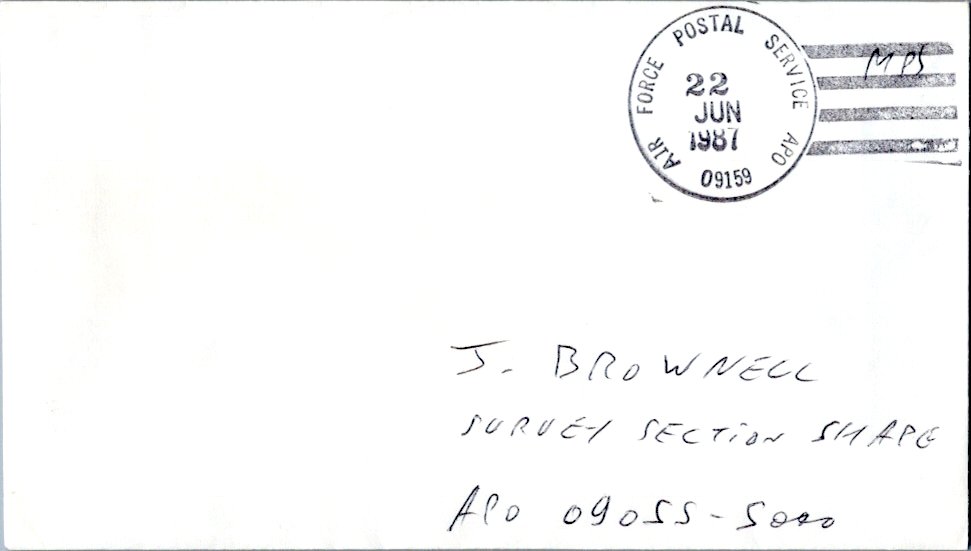 AIR FORCE POSTAL SERVICE APO
22
JUN
1987
09159
MPS
J. BROWNELL
SURVEY SECTION SHAPE
APO 09055-5000